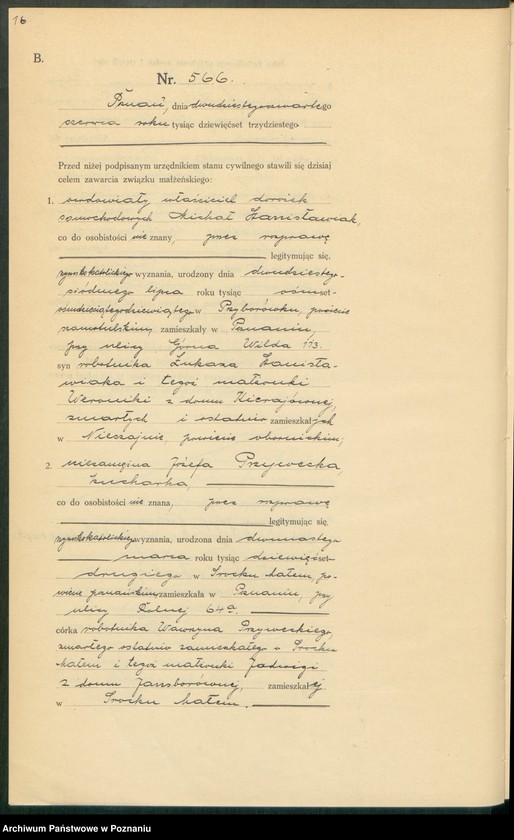 16
B.
Nr. 566.
Poznań, dnia dwudziestegoczwartego
czerwca roku tysiąc dziewięćset trzydziestego
Przed niżej podpisanym urzędnikiem stanu cywilnego stawili się dzisiaj
celem zawarcia związku małżeńskiego:
1. owdowiały właściciel dorożek
samochodowych Michał Stanisławiak,
co do osobistości nie znany, przez rozprawę
legitymując się,
rzymskokatolickiego wyznania, urodzony dnia dwudziestego-
siódmego lipca roku tysiąc ośmset-
ośmdziesiątegodziewiątego w Przyborówku, powiecie
szamotulskim, zamieszkały w Poznaniu,
przy ulicy Górna Wilda 113.
syn robotnika Łukasza Stanisła-
wiaka i tegoż małżonki
Weroniki z domu
zmarłych i ostatnio zamieszkałych
w powiecie obornickim;
2. niezamężna Józefa Przywecka,
kucharka,
co do osobistości nie znana, przez rozprawę
legitymując się,
rzymskokatolickiego wyznania, urodzona dnia dwunastego
marca roku tysiąc dziewięćset-
drugiego w Srocku małem, po-
wiecie poznańskim, zamieszkała w Poznaniu, przy
ulicy Rolnej 64a.
córka robotnika Wawrzyna Przyweckiego,
zmarłego ostatnio zamieszkałego w Srocku
małem i tegoż małżonki Jadwigi
z domu zamieszkałej
w Srocku małem.
Archiwum Państwowe w Poznaniu